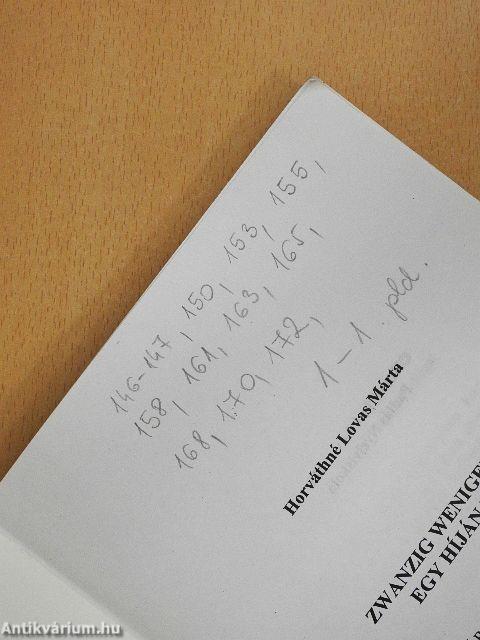 146-147, 150, 153, 155,
158, 161, 163, 165,
168, 170, 172,
1-1. pld.
Horváthné Lovas Márta
ZWANZIG WENIGE
EGY HÍJÁN
Antikvárium.hu